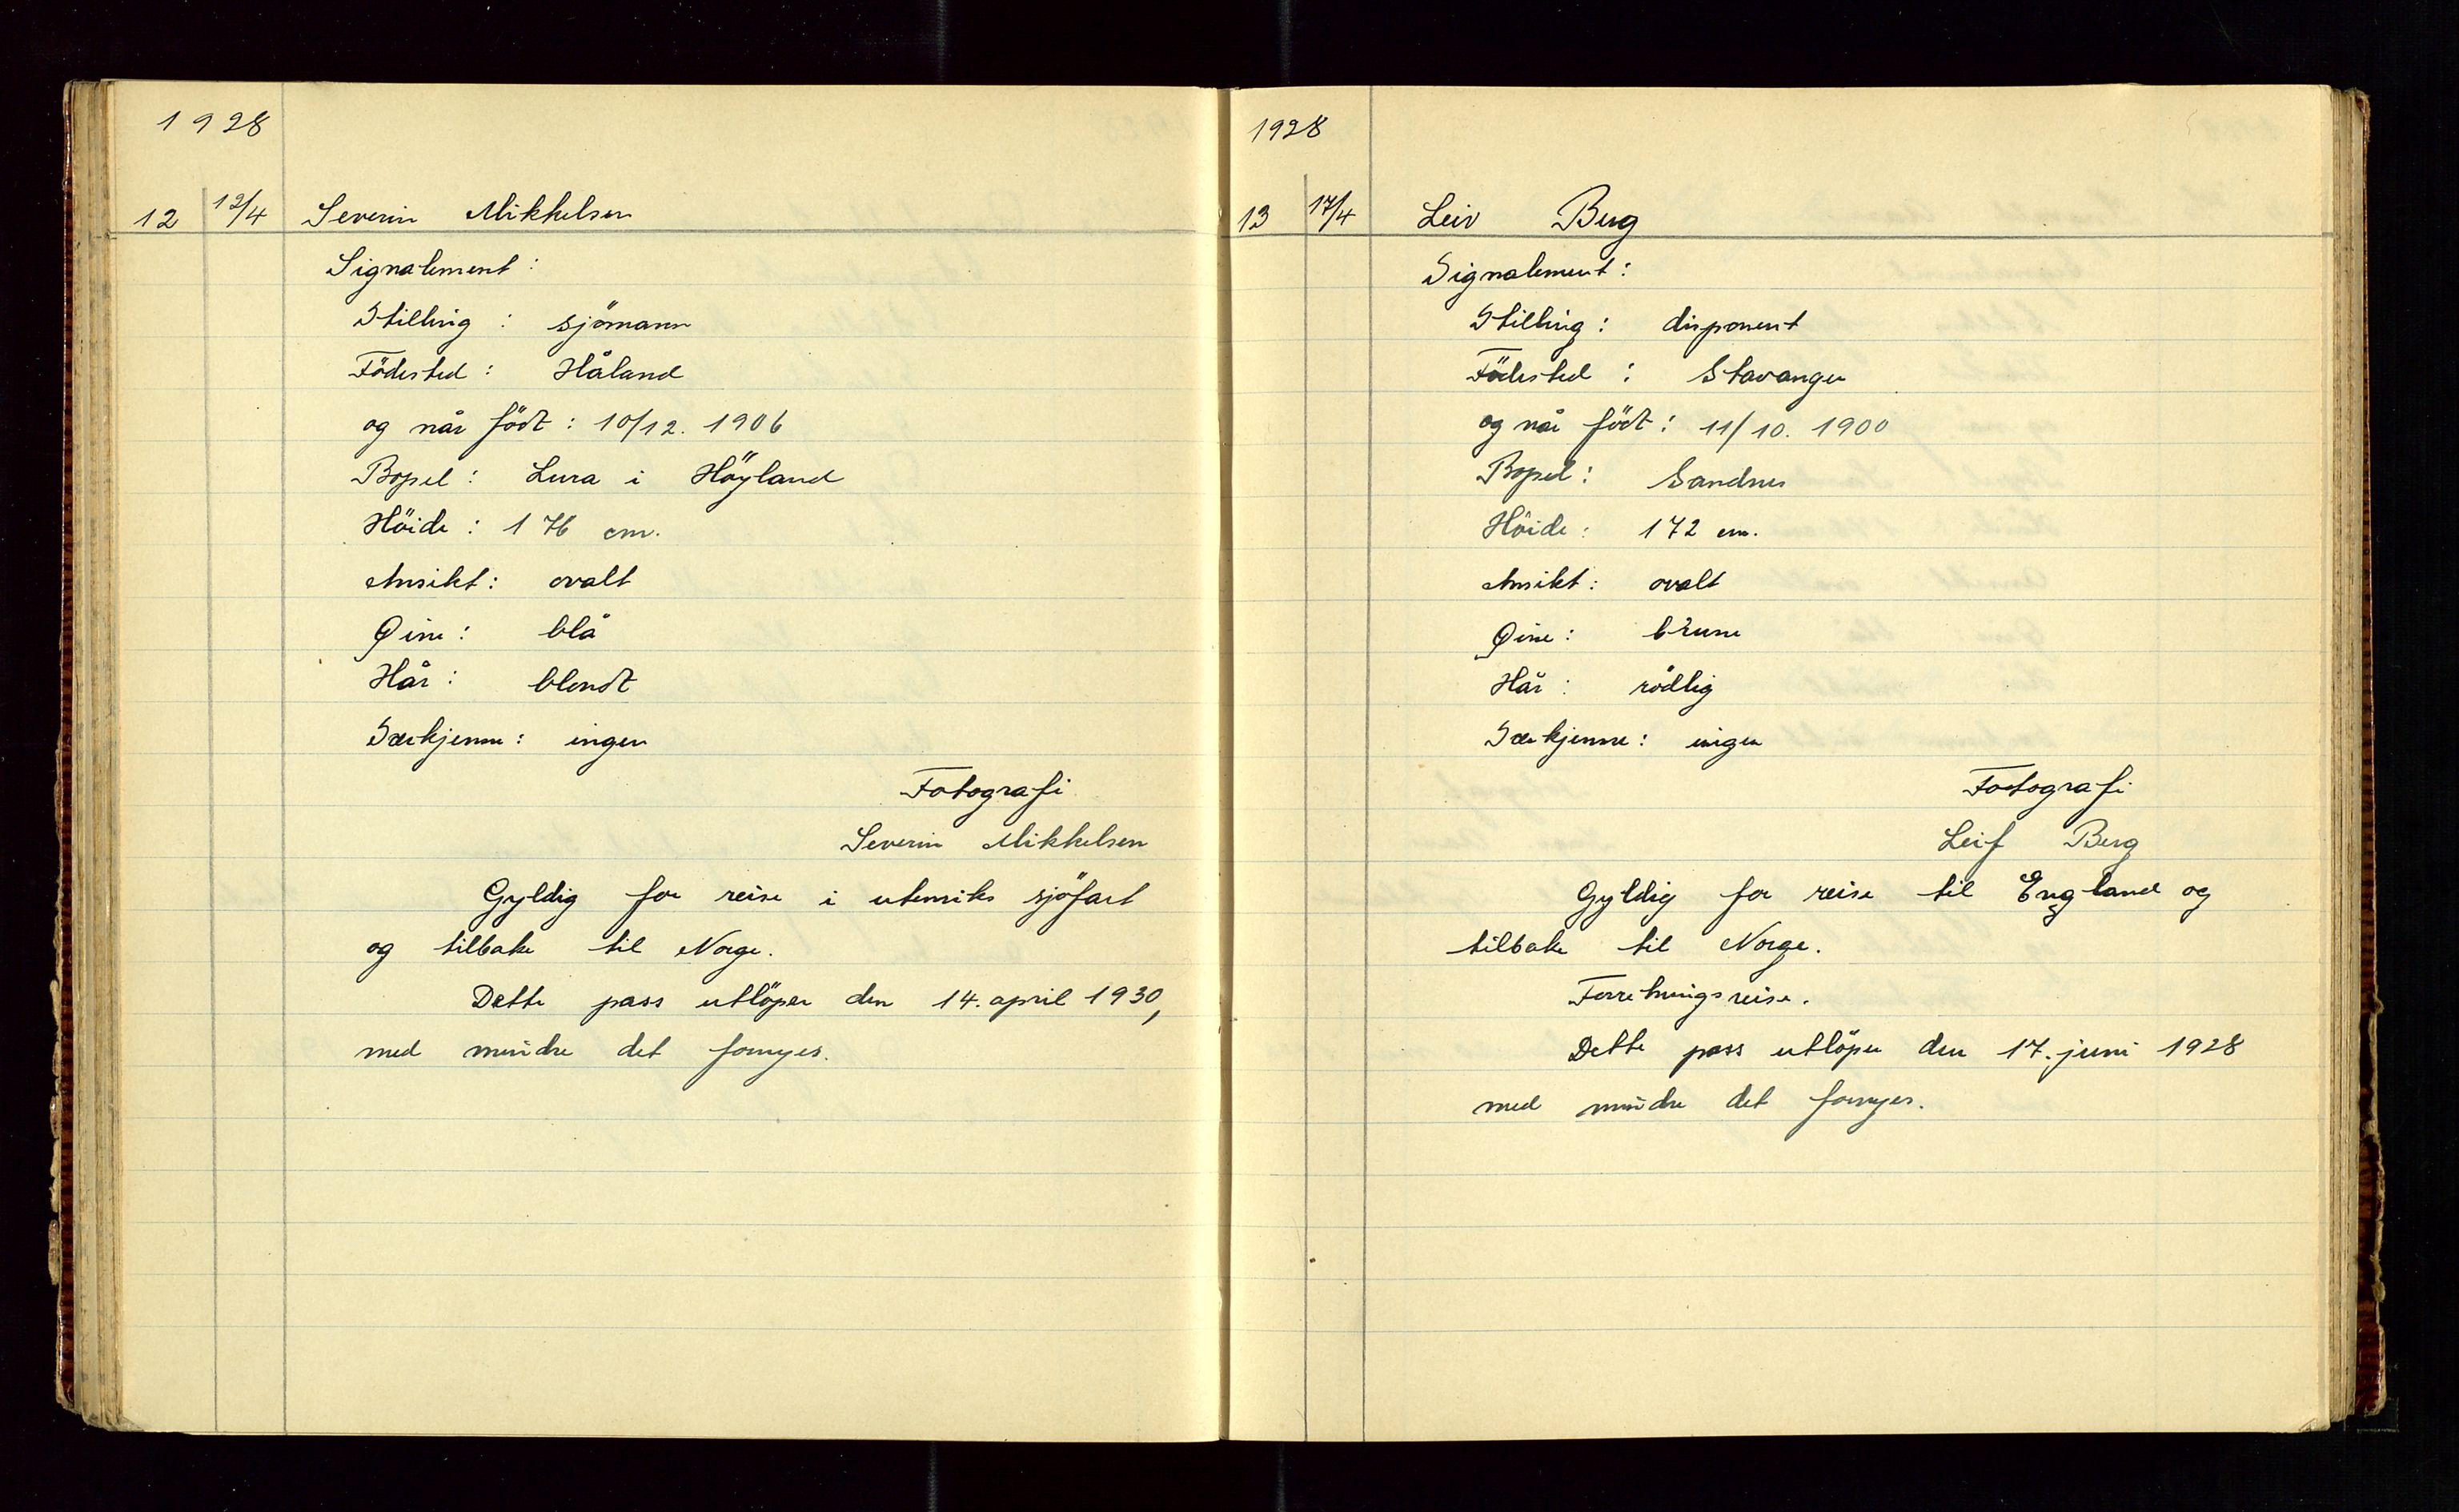 1928
12 12/4 Severin Mikkelsen
Signalement:
Stilling: sjömann
Födested: Håland
og når födt: 10/12. 1906
Bopel: Lura i Höyland
Höide: 176 cm.
Ansikt: ovalt
Øine: blå
Hår: blondt
Særkjenne: ingen
Fotografi
Severin Mikkelsen
Gyldig for reise i utenriks sjöfart
og tilbake til Norge.
Dette pass utlöper den 14. april 1930,
med mindre det fornyes.
1928
13 17/4 Leiv Berg
Signalement:
Stilling: disponent
Födested: Stavanger
og når födt: 11/10. 1900
Bopel: Sandnes
Höide: 172 cm.
Ansikt: ovalt
Øine: brune
Hår: rödlig
Særkjenne: ingen
Fotografi
Leif Berg
Gyldig for reise til England og
tilbake til Norge.
Forretningsreise.
Dette pass utlöper den 17. juni 1928
med mindre det fornyes.